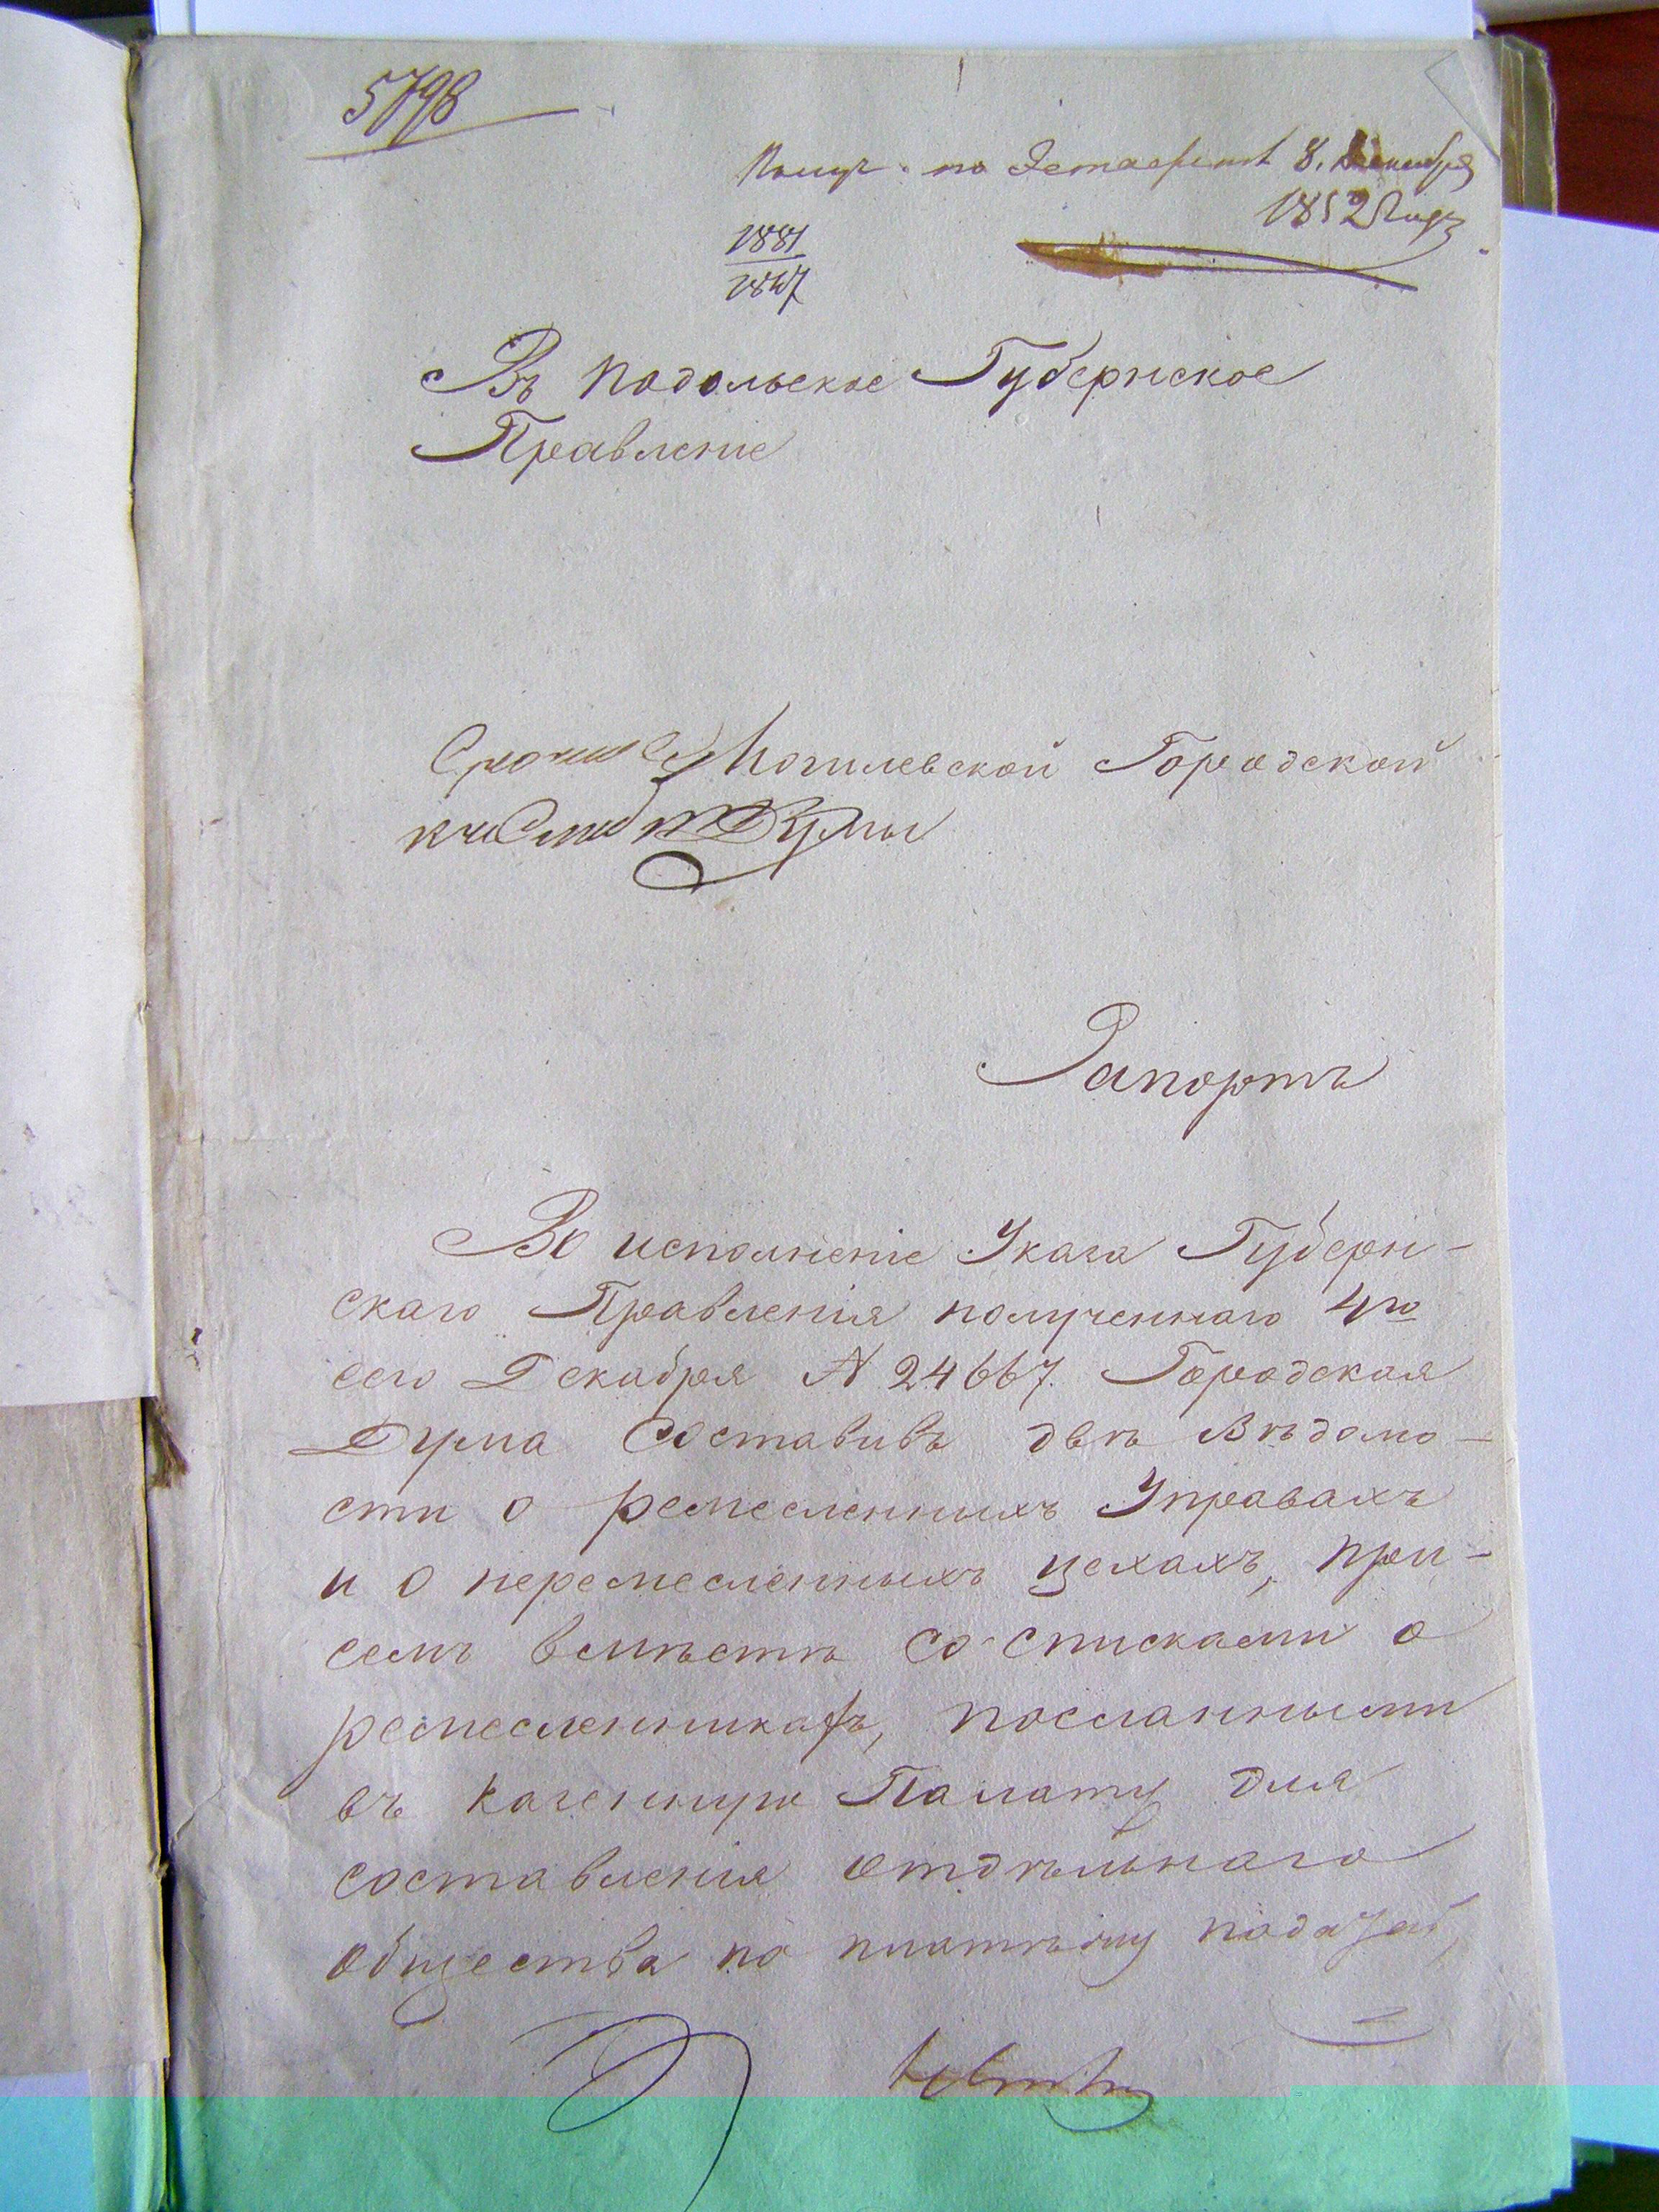 5798
Получ. по Эстафетѣ 8. Декабря
1852 Года
1881
1847
Въ Подольское Губернское
Правленіе
Могилевской Городской
Думы
Рапортъ
Во исполненіе Указа Губерн-
скаго Правленія полученнаго 4го
сего Декабря № 24667. Городская
Дума составивъ двѣ Вѣдомо-
сти о ремесленныхъ Управахъ
и о неремесленныхъ цехахъ, при-
семъ вмѣстѣ со списками о
ремесленникахъ, посланными
въ Казенную Палату для
составленія отдѣльнаго
общества по платѣжу податей,